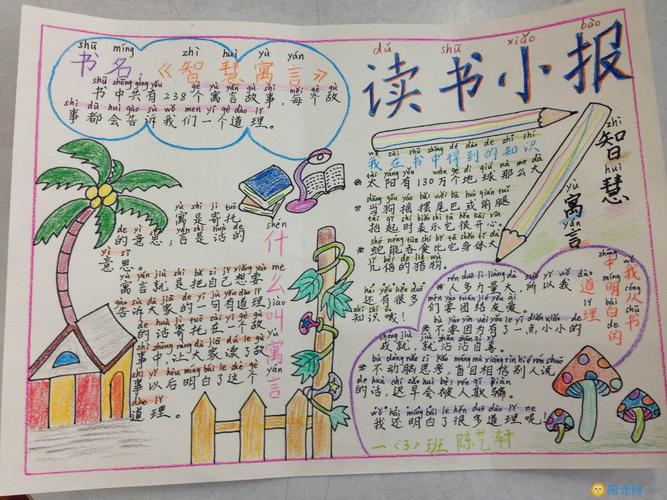 dú shū xiǎo bào
读书小报
shū míng zhì huì yù yán
书名《智慧寓言》
书中共有238个寓言故事，每个故
事都会告诉我们一个道理。
shén
什么叫寓言
寓是寄托
的意思，言是话的
意思。
寓言就是把自己想要
告诉大家的一句有道理
的话寄托在一个故
事中，让大家读了故
事以后明白了这个
道理。
zhì huì yù yán
智慧寓言
我在书中得到的知识
太阳有130万个地球那么大
当狗摇摆尾巴或前腿
抬起时表示它很开心。
蛇能吞食比它身体大
几倍的猎物。
还有很多
知识哦！
我从书中明白的道理
人多力量大，所以我
们要团结友爱。
不要因为有了一点小小的
成就，就沾沾自喜。
不动脑思考，盲目相信别人说
的话，迟早会被人欺骗。
我还明白了很多道理呢
一（3）班 陈艺轩
阳光网